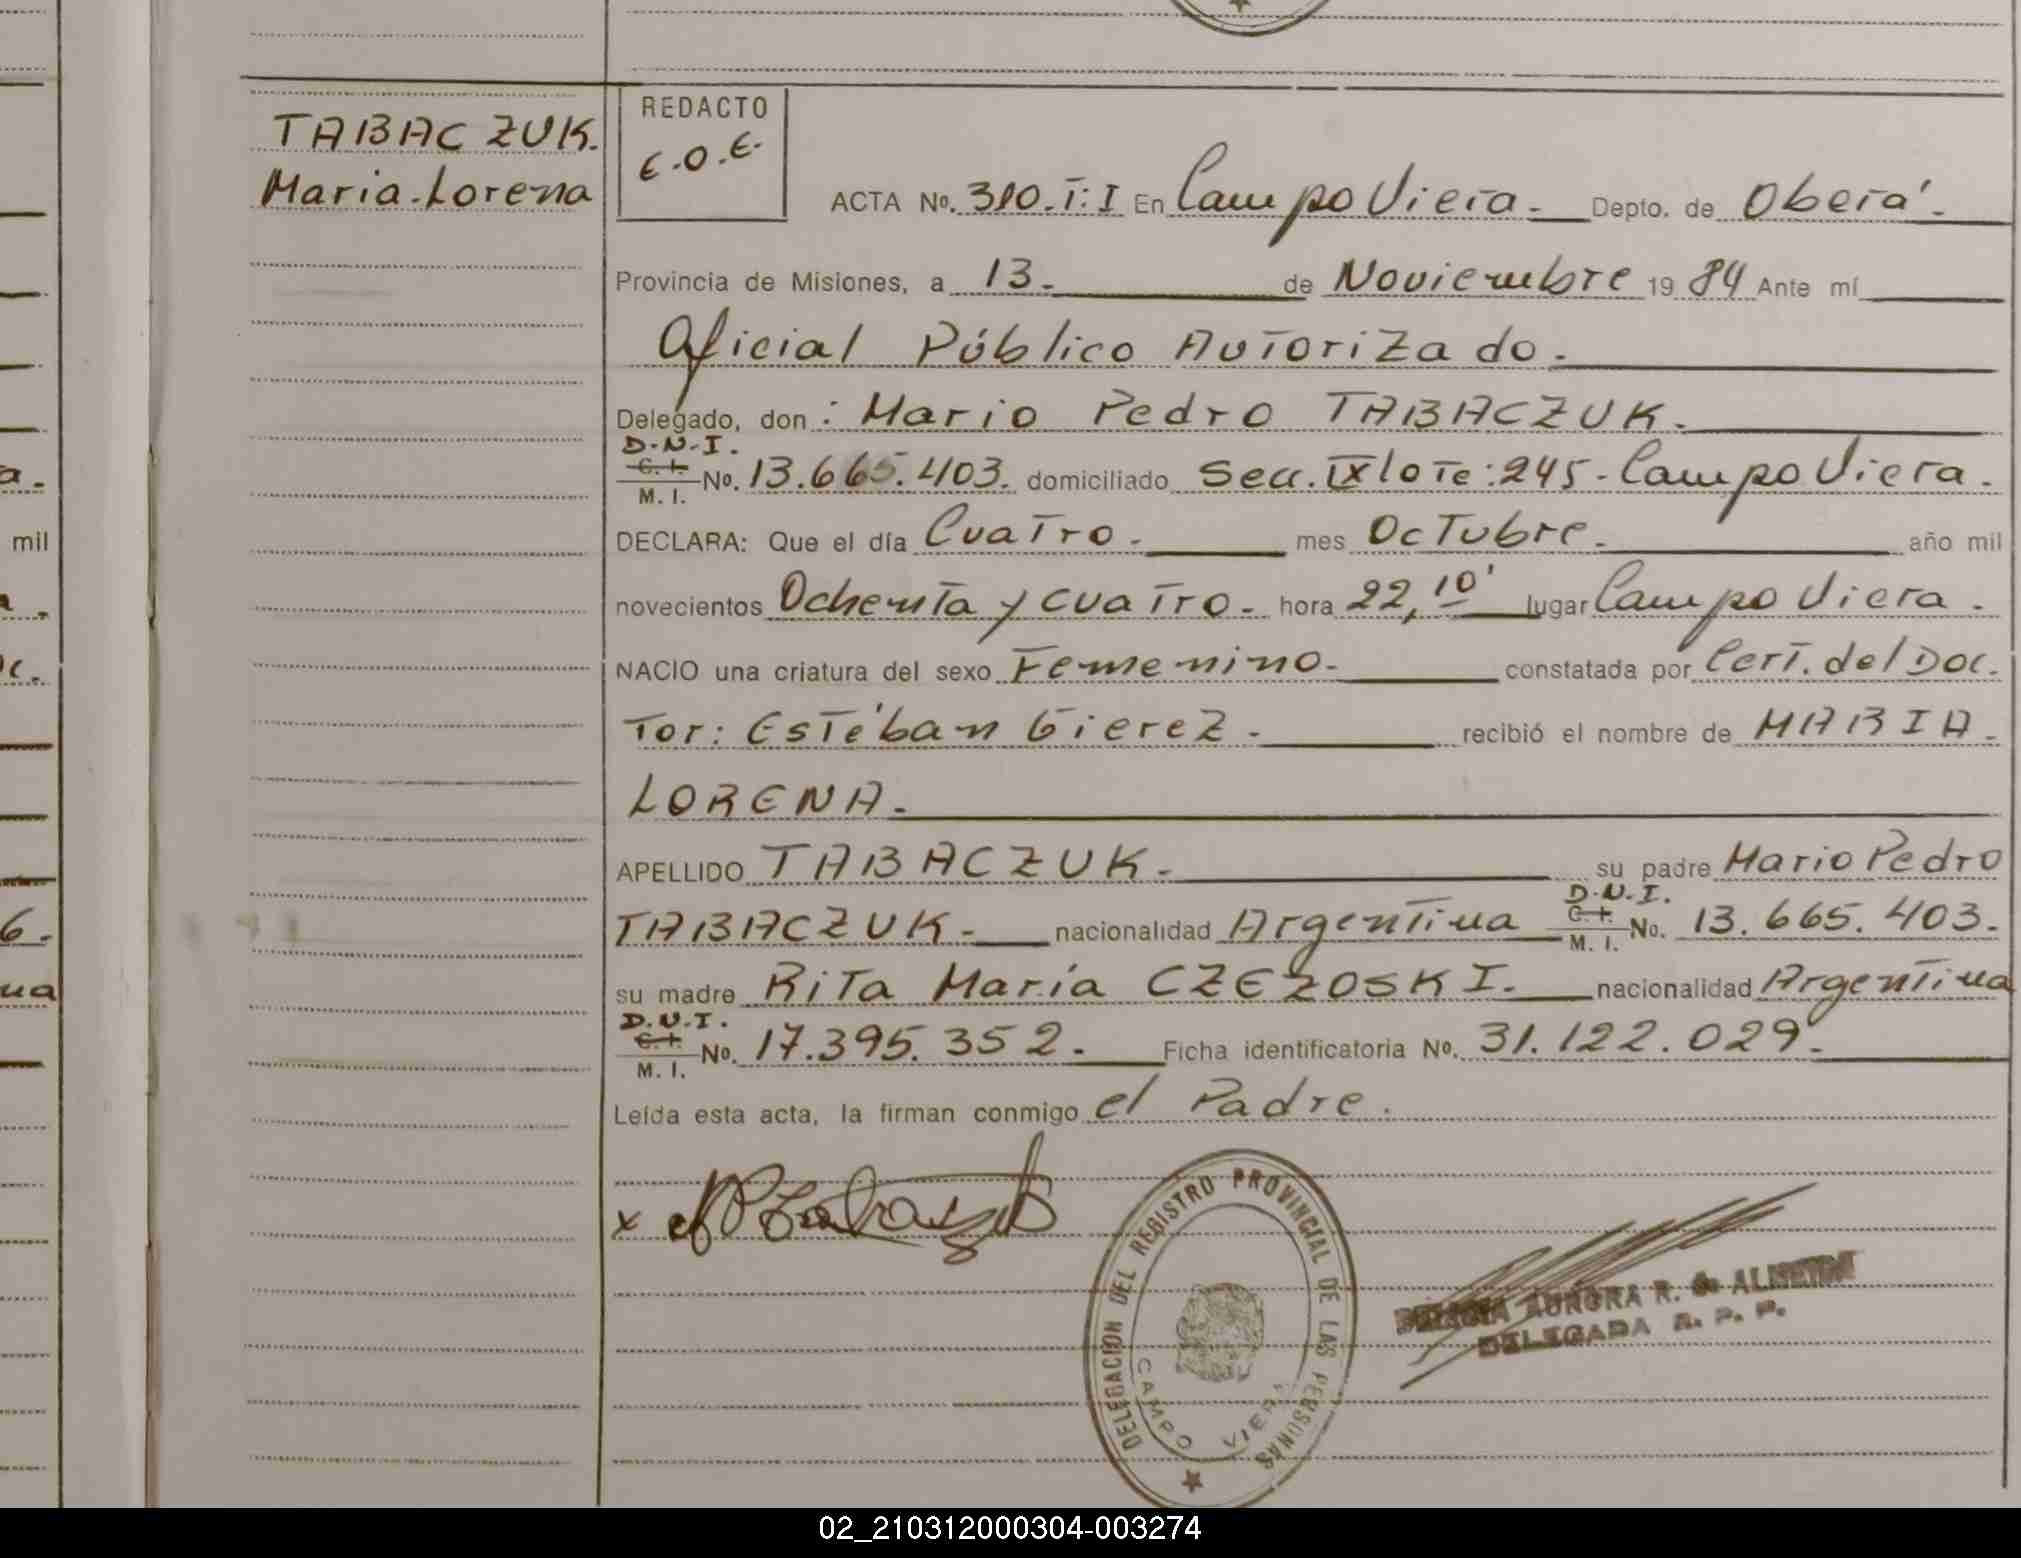 TABACZUK.
Maria Lorena
REDACTO
E.O.E.
ACTA No. 310.T:I En Campo Viera. Depto. de Oberá.
Provincia de Misiones, a 13. de Noviembre 1984 Ante mí
Oficial Público Autorizado.
Delegado, don: Mario Pedro TABACZUK.
D.N.I.
C.I.
M. I. No. 13.665.403. domiciliado Secc. IX lote: 245 - Campo Viera.
DECLARA: Que el día Cuatro. mes Octubre. año mil
novecientos Ochenta y cuatro. hora 22,10' lugar Campo Viera.
NACIO una criatura del sexo Femenino. constatada por Cert. del Doc.
tor: Estéban Gierez. recibió el nombre de MARIA.
LORENA.
APELLIDO TABACZUK. su padre Mario Pedro
D.N.I.
C.I.
TABACZUK. nacionalidad Argentina M. I. No. 13.665.403.
su madre Rita María CZEZOSKI. nacionalidad Argentina
D.N.I.
C.I.
M. I. No. 17.395.352. Ficha identificatoria No. 31.122.029.
Leída esta acta, la firman conmigo el Padre.
x
DELEGACION DEL REGISTRO PROVINCIAL DE LAS PERSONAS
CAMPO VIERA
AURORA R. de ALMEIDA
DELEGADA R. P. P.
mil
02_210312000304-003274